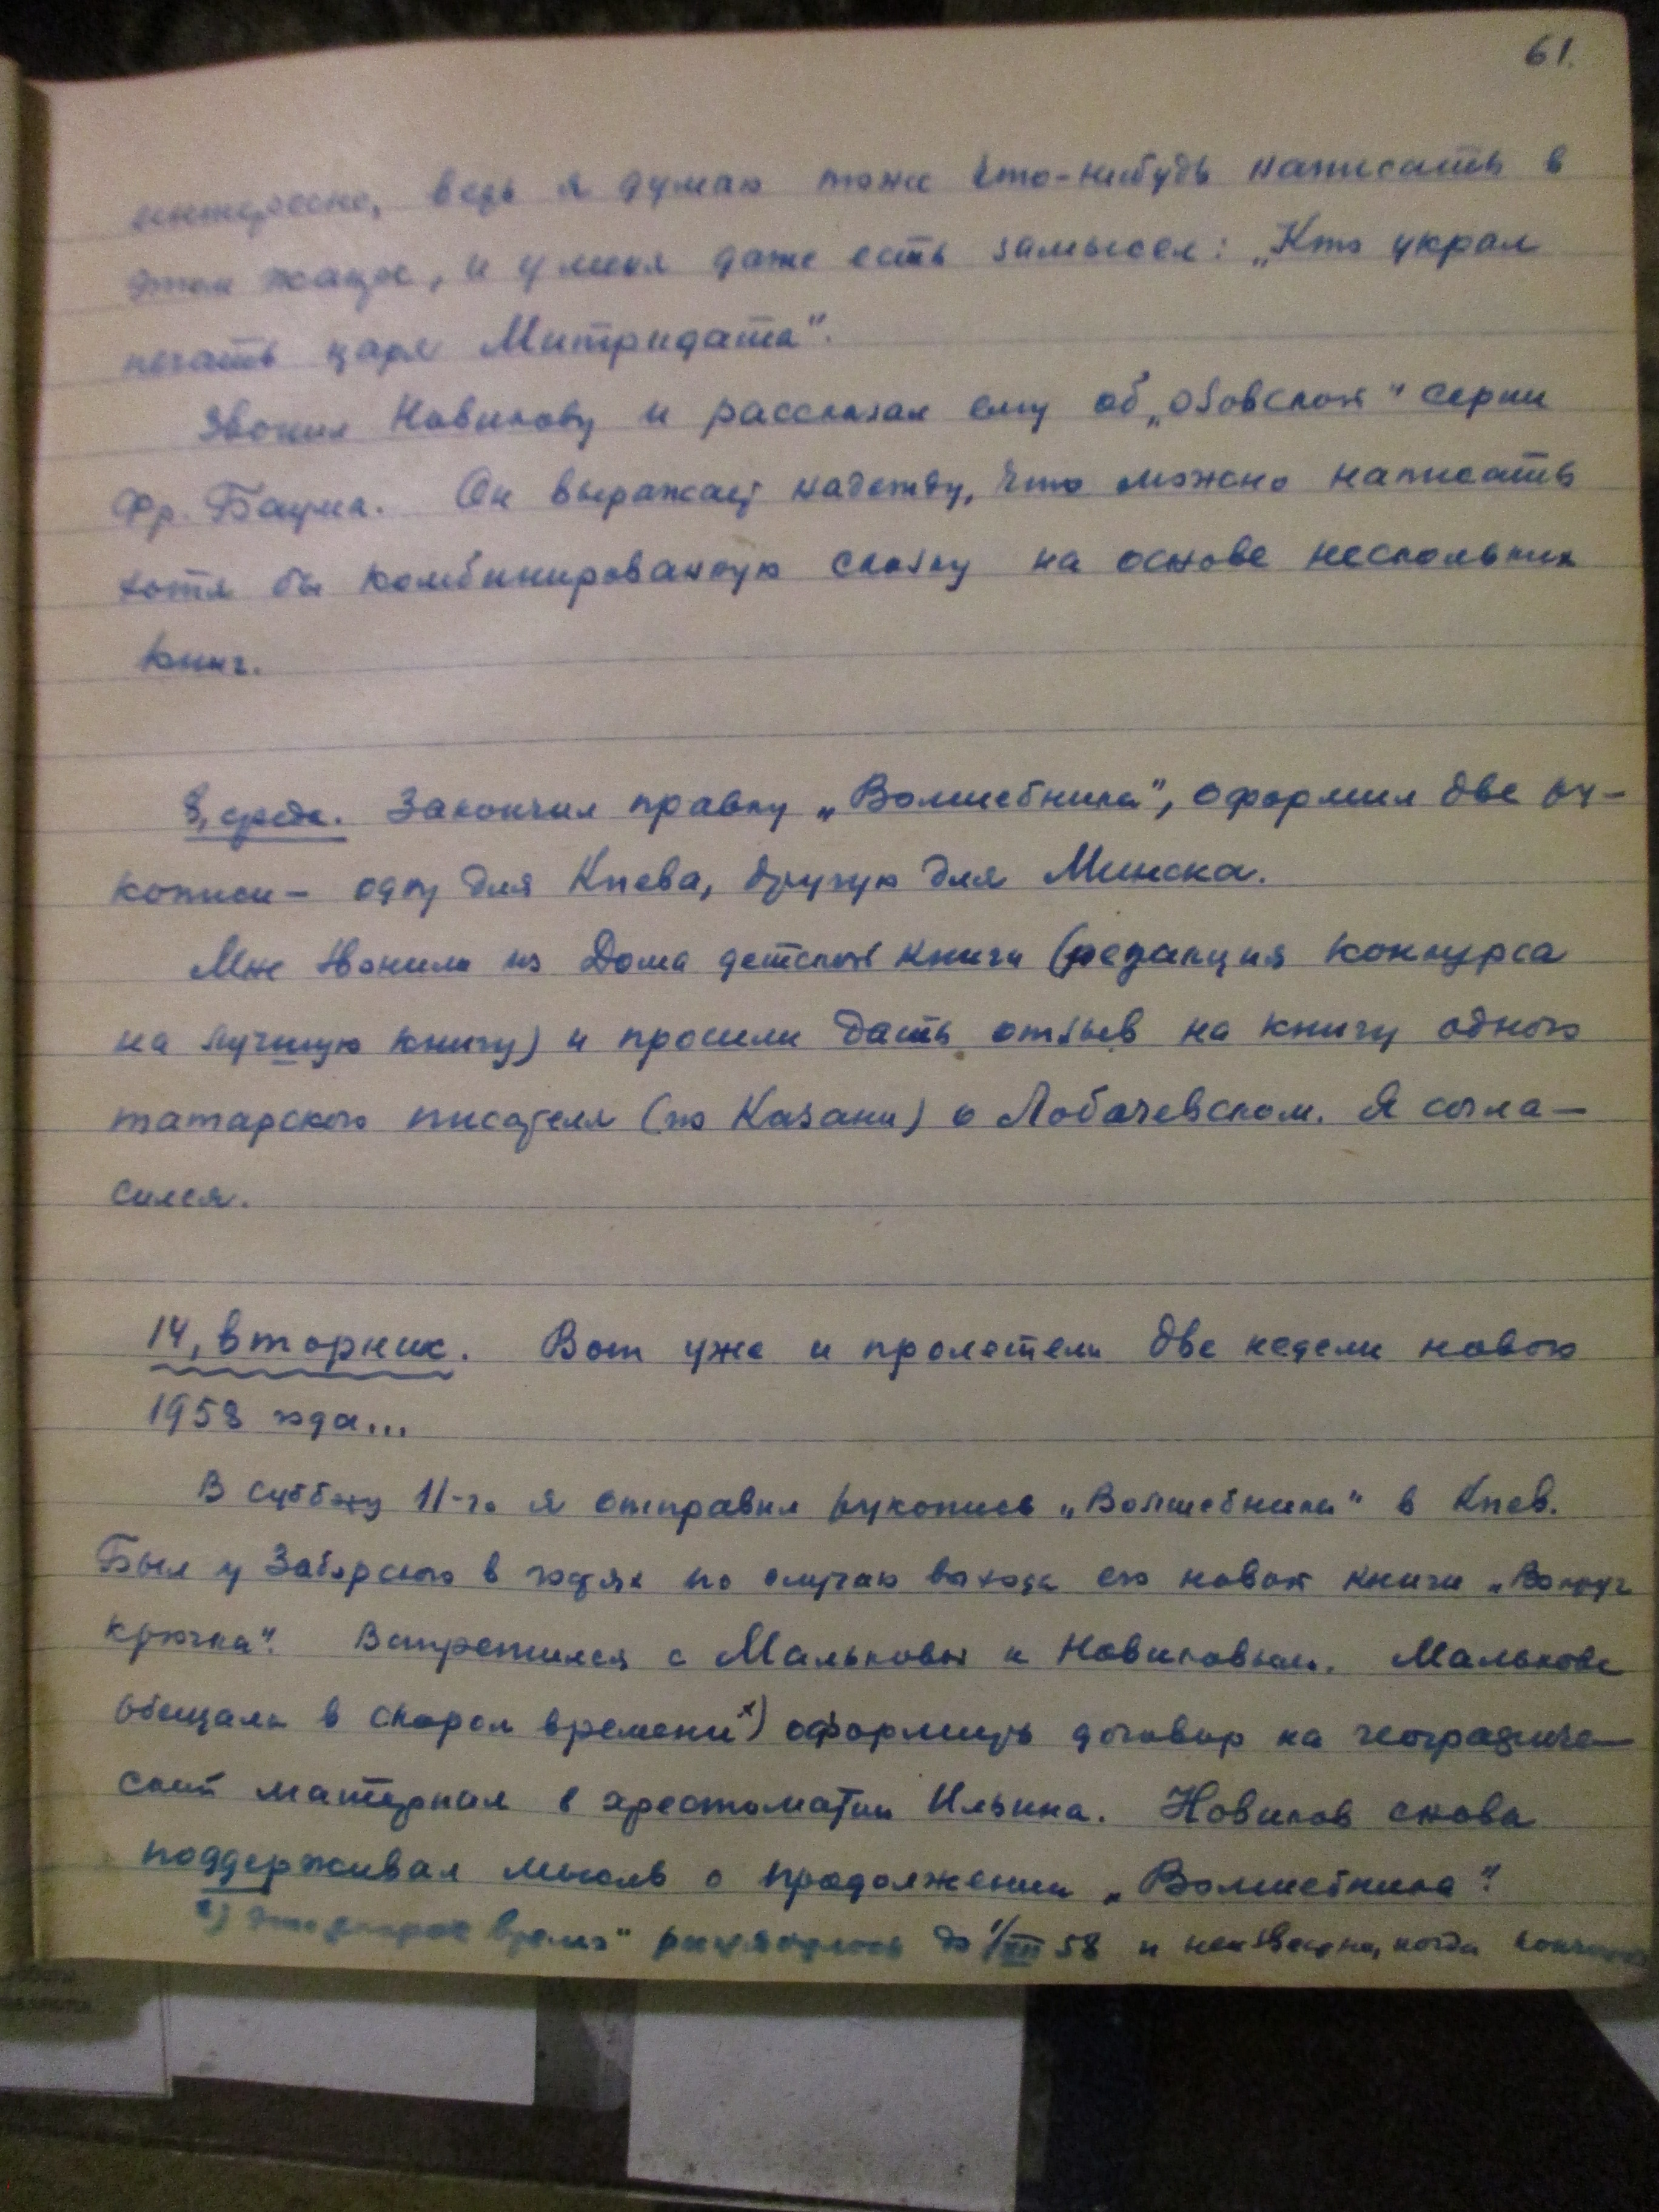 61.
интересно, ведь я думаю тоже что-нибудь написать в
этом жанре, и у меня даже есть замысел: „Кто украл
печать царя Митридата".
Звонил Новикову и рассказал ему об „Озовской" серии
Фр. Баума. Он выражает надежду, что можно написать
хотя бы комбинированную сказку на основе нескольких
книг.
8, среда. Закончил правку „Волшебника", оформил две ру-
кописи - одну для Киева, другую для Минска.
Мне звонили из Дома детской книги (редакция конкурса
на лучшую книгу) и просили дать отзыв на книгу одного
татарского писателя (из Казани) о Лобачевском. Я согла-
сился.
14, вторник. Вот уже и пролетели две недели нового
1958 года...
В субботу 11-го я отправил рукопись „Волшебника" в Киев.
Был у Заборского в гостях по случаю выхода его новой книги „Вокруг
крючка". Встретился с Мальковой и Новиковым. Малькова
обещала в скором времени х) оформить договор на географиче-
ский материал в хрестоматии Ильина. Новиков снова
поддерживал мысль о продолжении „Волшебника".
х) Это „скорое время" растянулось до 1/III 58 и неизвестно, когда кончится